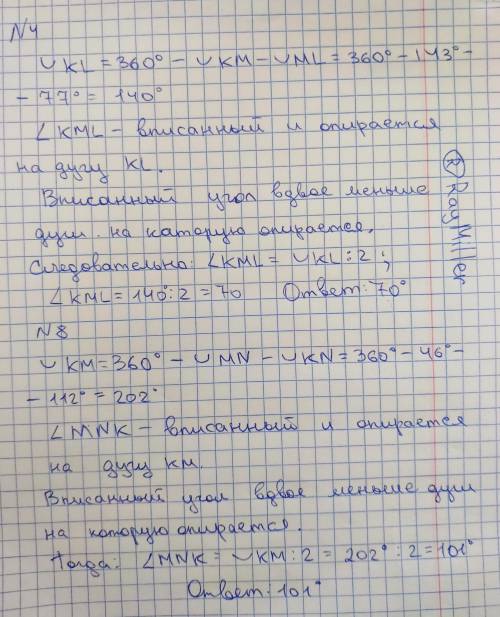 N4
◡KL = 360° - ◡KM - ◡ML = 360° - 143° -
- 77° = 140°
∠KML - вписанный и опирается
на дугу KL.
Вписанный угол вдвое меньше
дуги на каторую опирается.
Следовательно: ∠KML = ◡KL : 2 ;
∠KML = 140° : 2 = 70 Ответ: 70°
N8
◡KM = 360° - ◡MN - ◡KN = 360° - 46° -
- 112° = 202°
∠MNK - вписанный и опирается
на дугу KM.
Вписанный угол вдвое меньше дуги
на которую опирается.
Тогда: ∠MNK = ◡KM : 2 = 202° : 2 = 101°
Ответ: 101°
® RayMiller